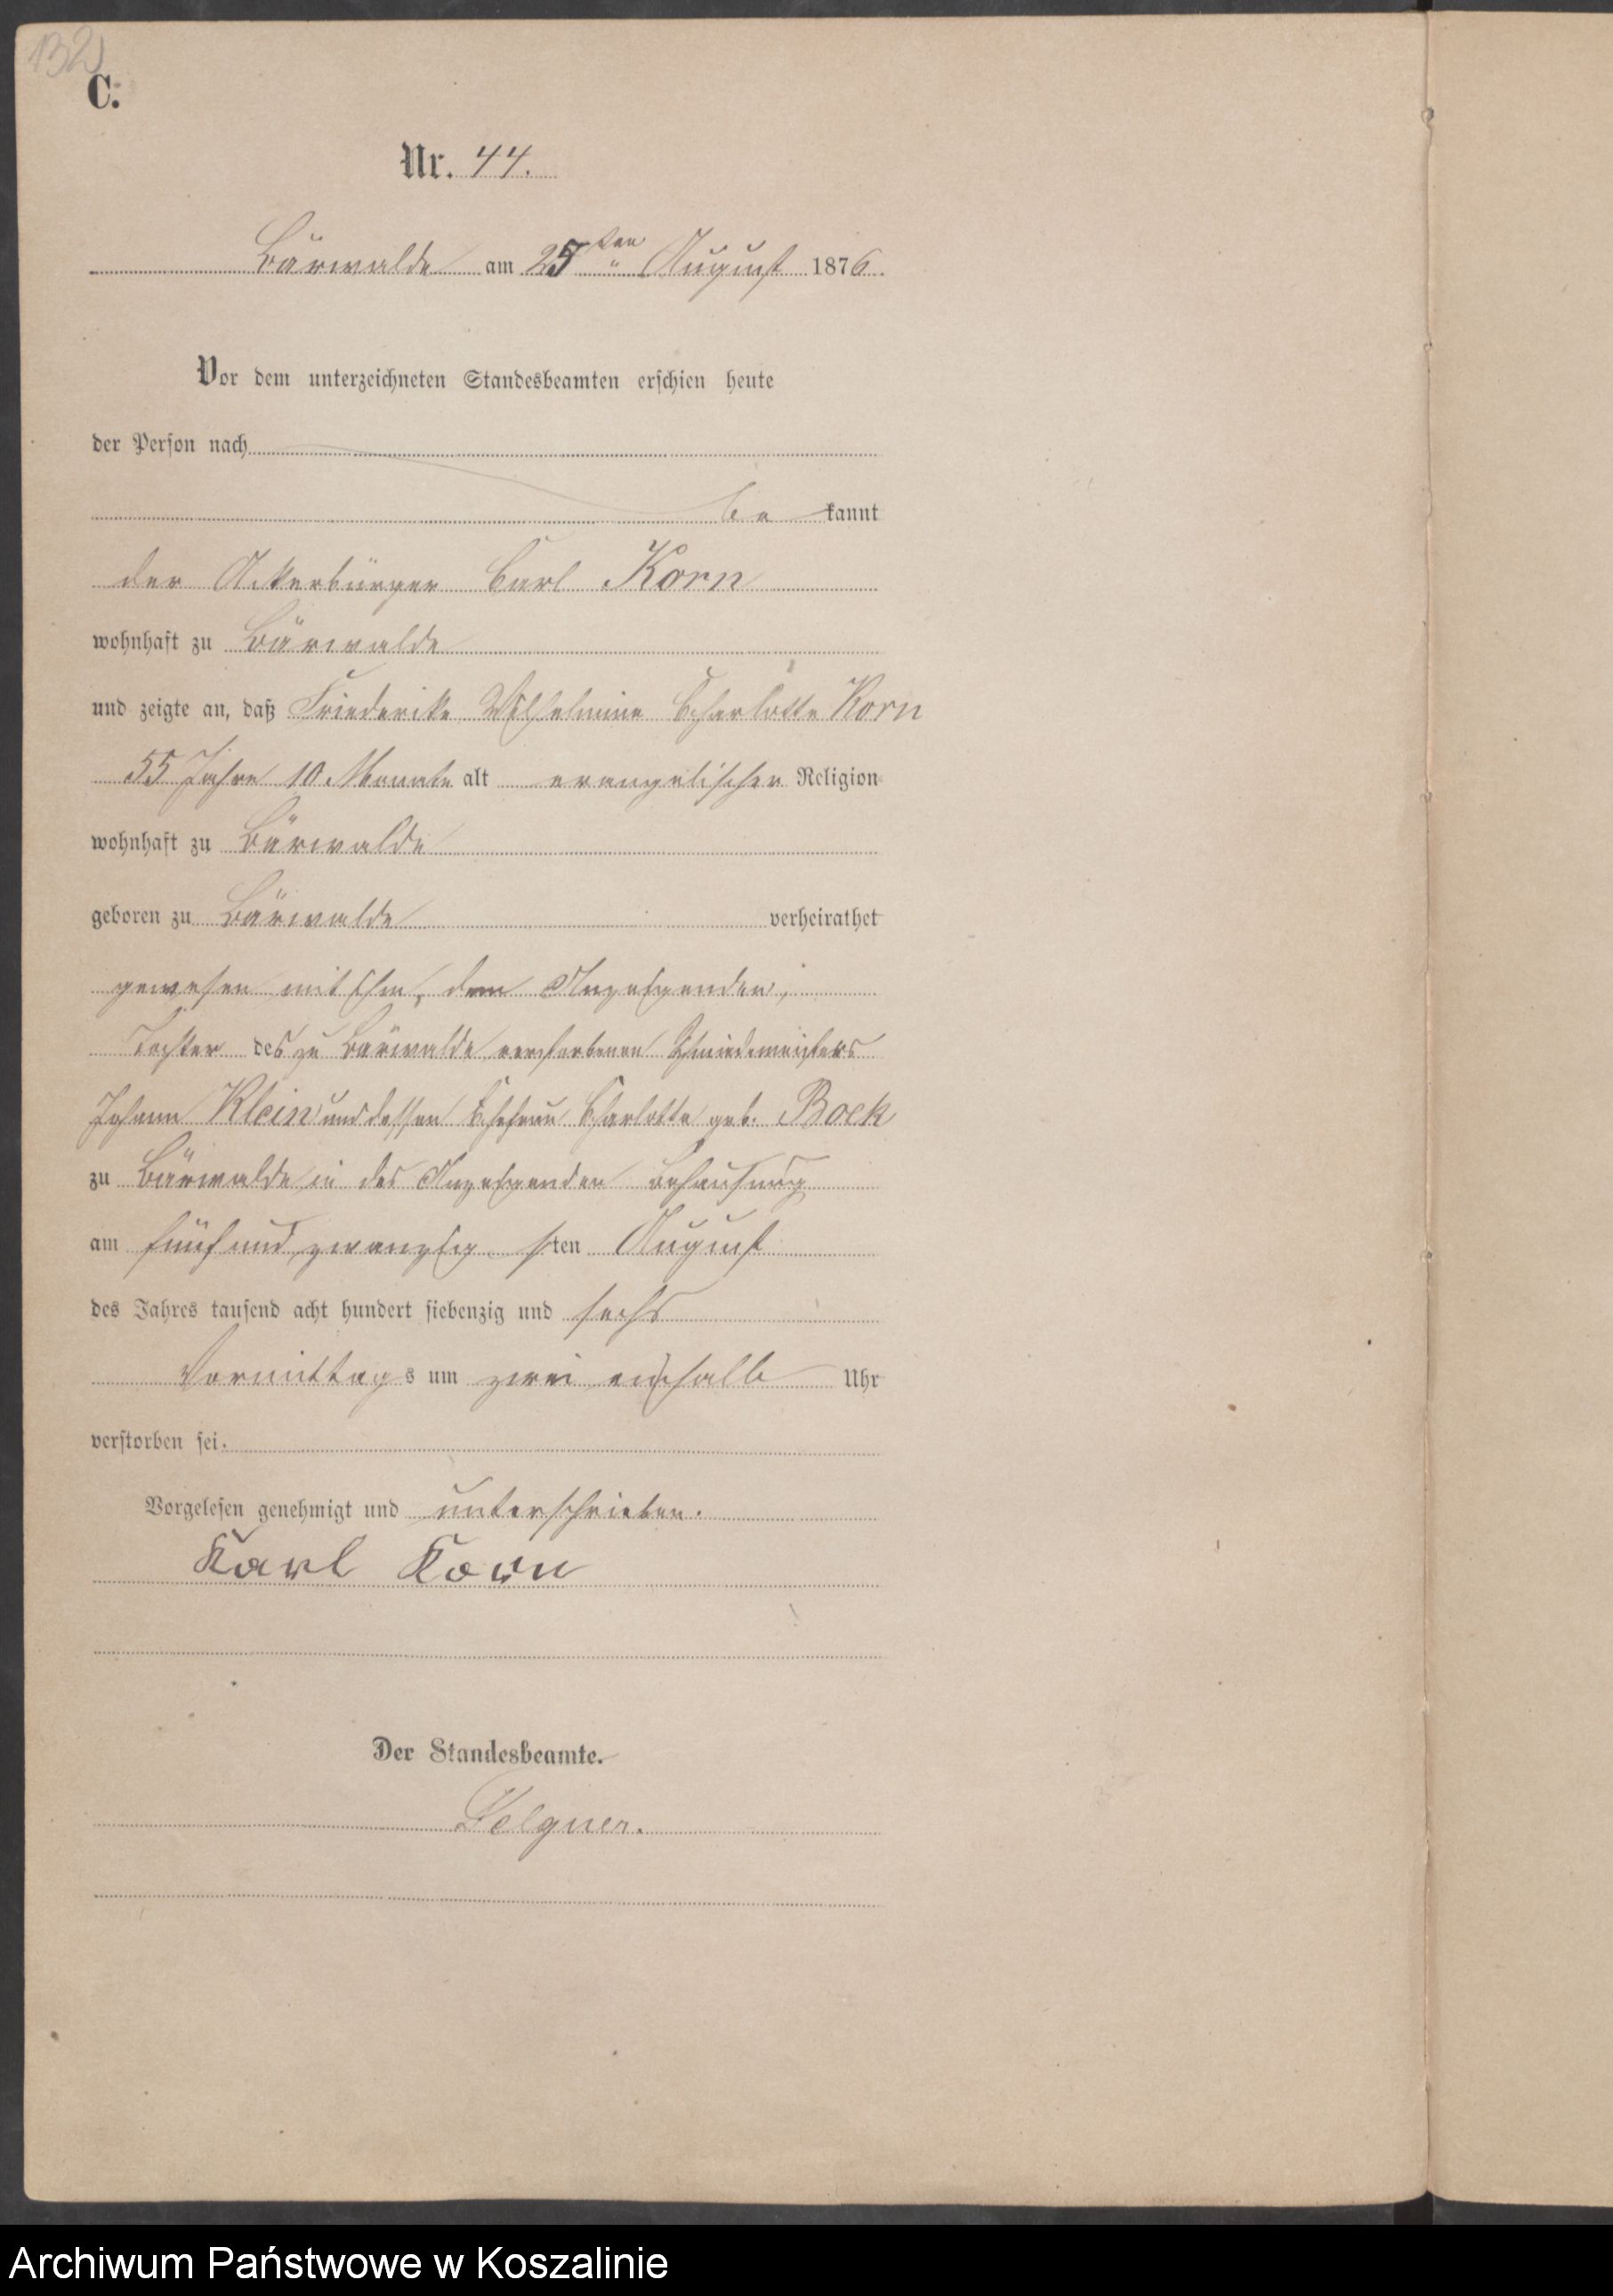 132
C.
Nr. 44.
Bärwalde am 25ten August 1876.
Vor dem unterzeichneten Standesbeamten erschien heute
der Person nach
be kannt
der Ackerbürger Carl Korn
wohnhaft zu Bärwalde
und zeigte an, daß Friederike Wilhelmine Charlotte Korn
55 Jahre 10 Monate alt evangelischer Religion
wohnhaft zu Bärwalde
geboren zu Bärwalde verheirathet
gewesen mit ihm, dem Anzeigenden,
Tochter des zu Bärwalde verstorbenen Schmiedemeisters
Johann Klein und dessen Ehefrau Charlotte geb. Bock
zu Bärwalde in des Anzeigenden Behausung
am fünf und zwanzig sten August
des Jahres tausend acht hundert siebenzig und sechs
Vormittags um zwei einhalb Uhr
verstorben sei.
Vorgelesen genehmigt und unterschrieben.
Karl Korn
Der Standesbeamte.
Archiwum Państwowe w Koszalinie